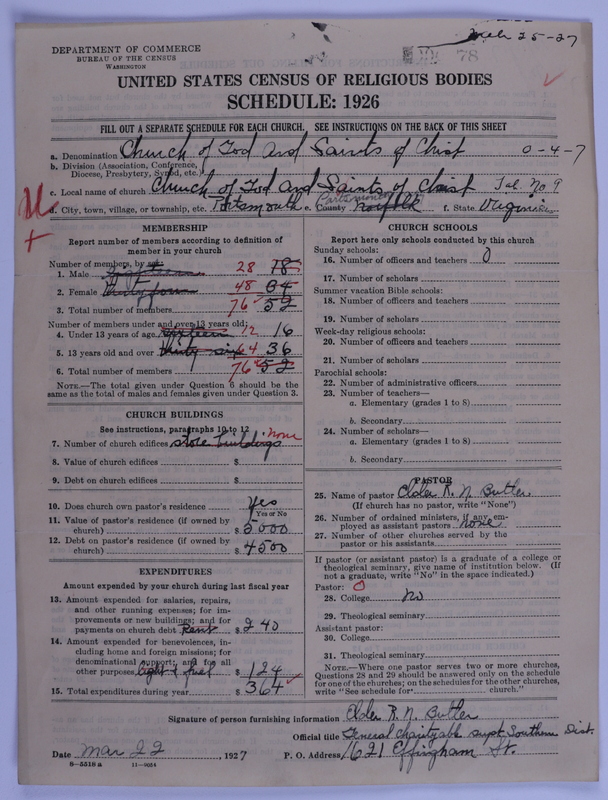 Mch 25-27
78
DEPARTMENT OF COMMERCE
BUREAU OF THE CENSUS
WASHINGTON
UNITED STATES CENSUS OF RELIGIOUS BODIES
SCHEDULE: 1926
FILL OUT A SEPARATE SCHEDULE FOR EACH CHURCH. SEE INSTRUCTIONS ON THE BACK OF THIS SHEET
a. Denomination Church of God And Saints of Christ 0-4-7
b. Division (Association, Conference, Diocese, Presbytery, Synod, etc.)
c. Local name of church Church of God And Saints of Christ Tab. No 9
d. City, town, village, or township, etc. Portsmouth e. County Norfolk f. State Virginia
MEMBERSHIP
Report number of members according to definition of member in your church
Number of members, by sex:
1. Male 28 18
2. Female thirty four 48 34
3. Total number of members 76 52
Number of members under and over 13 years old:
4. Under 13 years of age sixteen 12 16
5. 13 years old and over thirty six 64 36
6. Total number of members 76 52
NOTE.—The total given under Question 6 should be the same as the total of males and females given under Question 3.
CHURCH BUILDINGS
See instructions, paragraphs 10 to 12
7. Number of church edifices store buildings none
8. Value of church edifices $
9. Debt on church edifices $
10. Does church own pastor's residence yes
Yes or No
11. Value of pastor's residence (if owned by church) $ 5000
12. Debt on pastor's residence (if owned by church) $ 4500
EXPENDITURES
Amount expended by your church during last fiscal year
13. Amount expended for salaries, repairs, and other running expenses; for improvements or new buildings; and for payments on church debt Rent $ 240
14. Amount expended for benevolences, including home and foreign missions; for denominational support; and for all other purposes light & fuel $ 124
15. Total expenditures during year $ 364
CHURCH SCHOOLS
Report here only schools conducted by this church
Sunday schools:
16. Number of officers and teachers 0
17. Number of scholars
Summer vacation Bible schools:
18. Number of officers and teachers
19. Number of scholars
Week-day religious schools:
20. Number of officers and teachers
21. Number of scholars
Parochial schools:
22. Number of administrative officers
23. Number of teachers—
a. Elementary (grades 1 to 8)
b. Secondary
24. Number of scholars—
a. Elementary (grades 1 to 8)
b. Secondary
PASTOR
25. Name of pastor Elder R. N. Butler
(If church has no pastor, write "None")
26. Number of ordained ministers, if any, employed as assistant pastors none
27. Number of other churches served by the pastor or his assistants
If pastor (or assistant pastor) is a graduate of a college or theological seminary, give name of institution below. (If not a graduate, write "No" in the space indicated.)
Pastor: 0
28. College no
29. Theological seminary
Assistant pastor:
30. College
31. Theological seminary
NOTE.—Where one pastor serves two or more churches, Questions 28 and 29 should be answered only on the schedule for one of the churches; on the schedules for the other churches, write "See schedule for church."
Signature of person furnishing information Elder R. N. Butler
Official title General charityable supt. Southern Dist.
Date Mar 22, 1927 P. O. Address 1621 Effingham St.
8-5518 a 11-9054